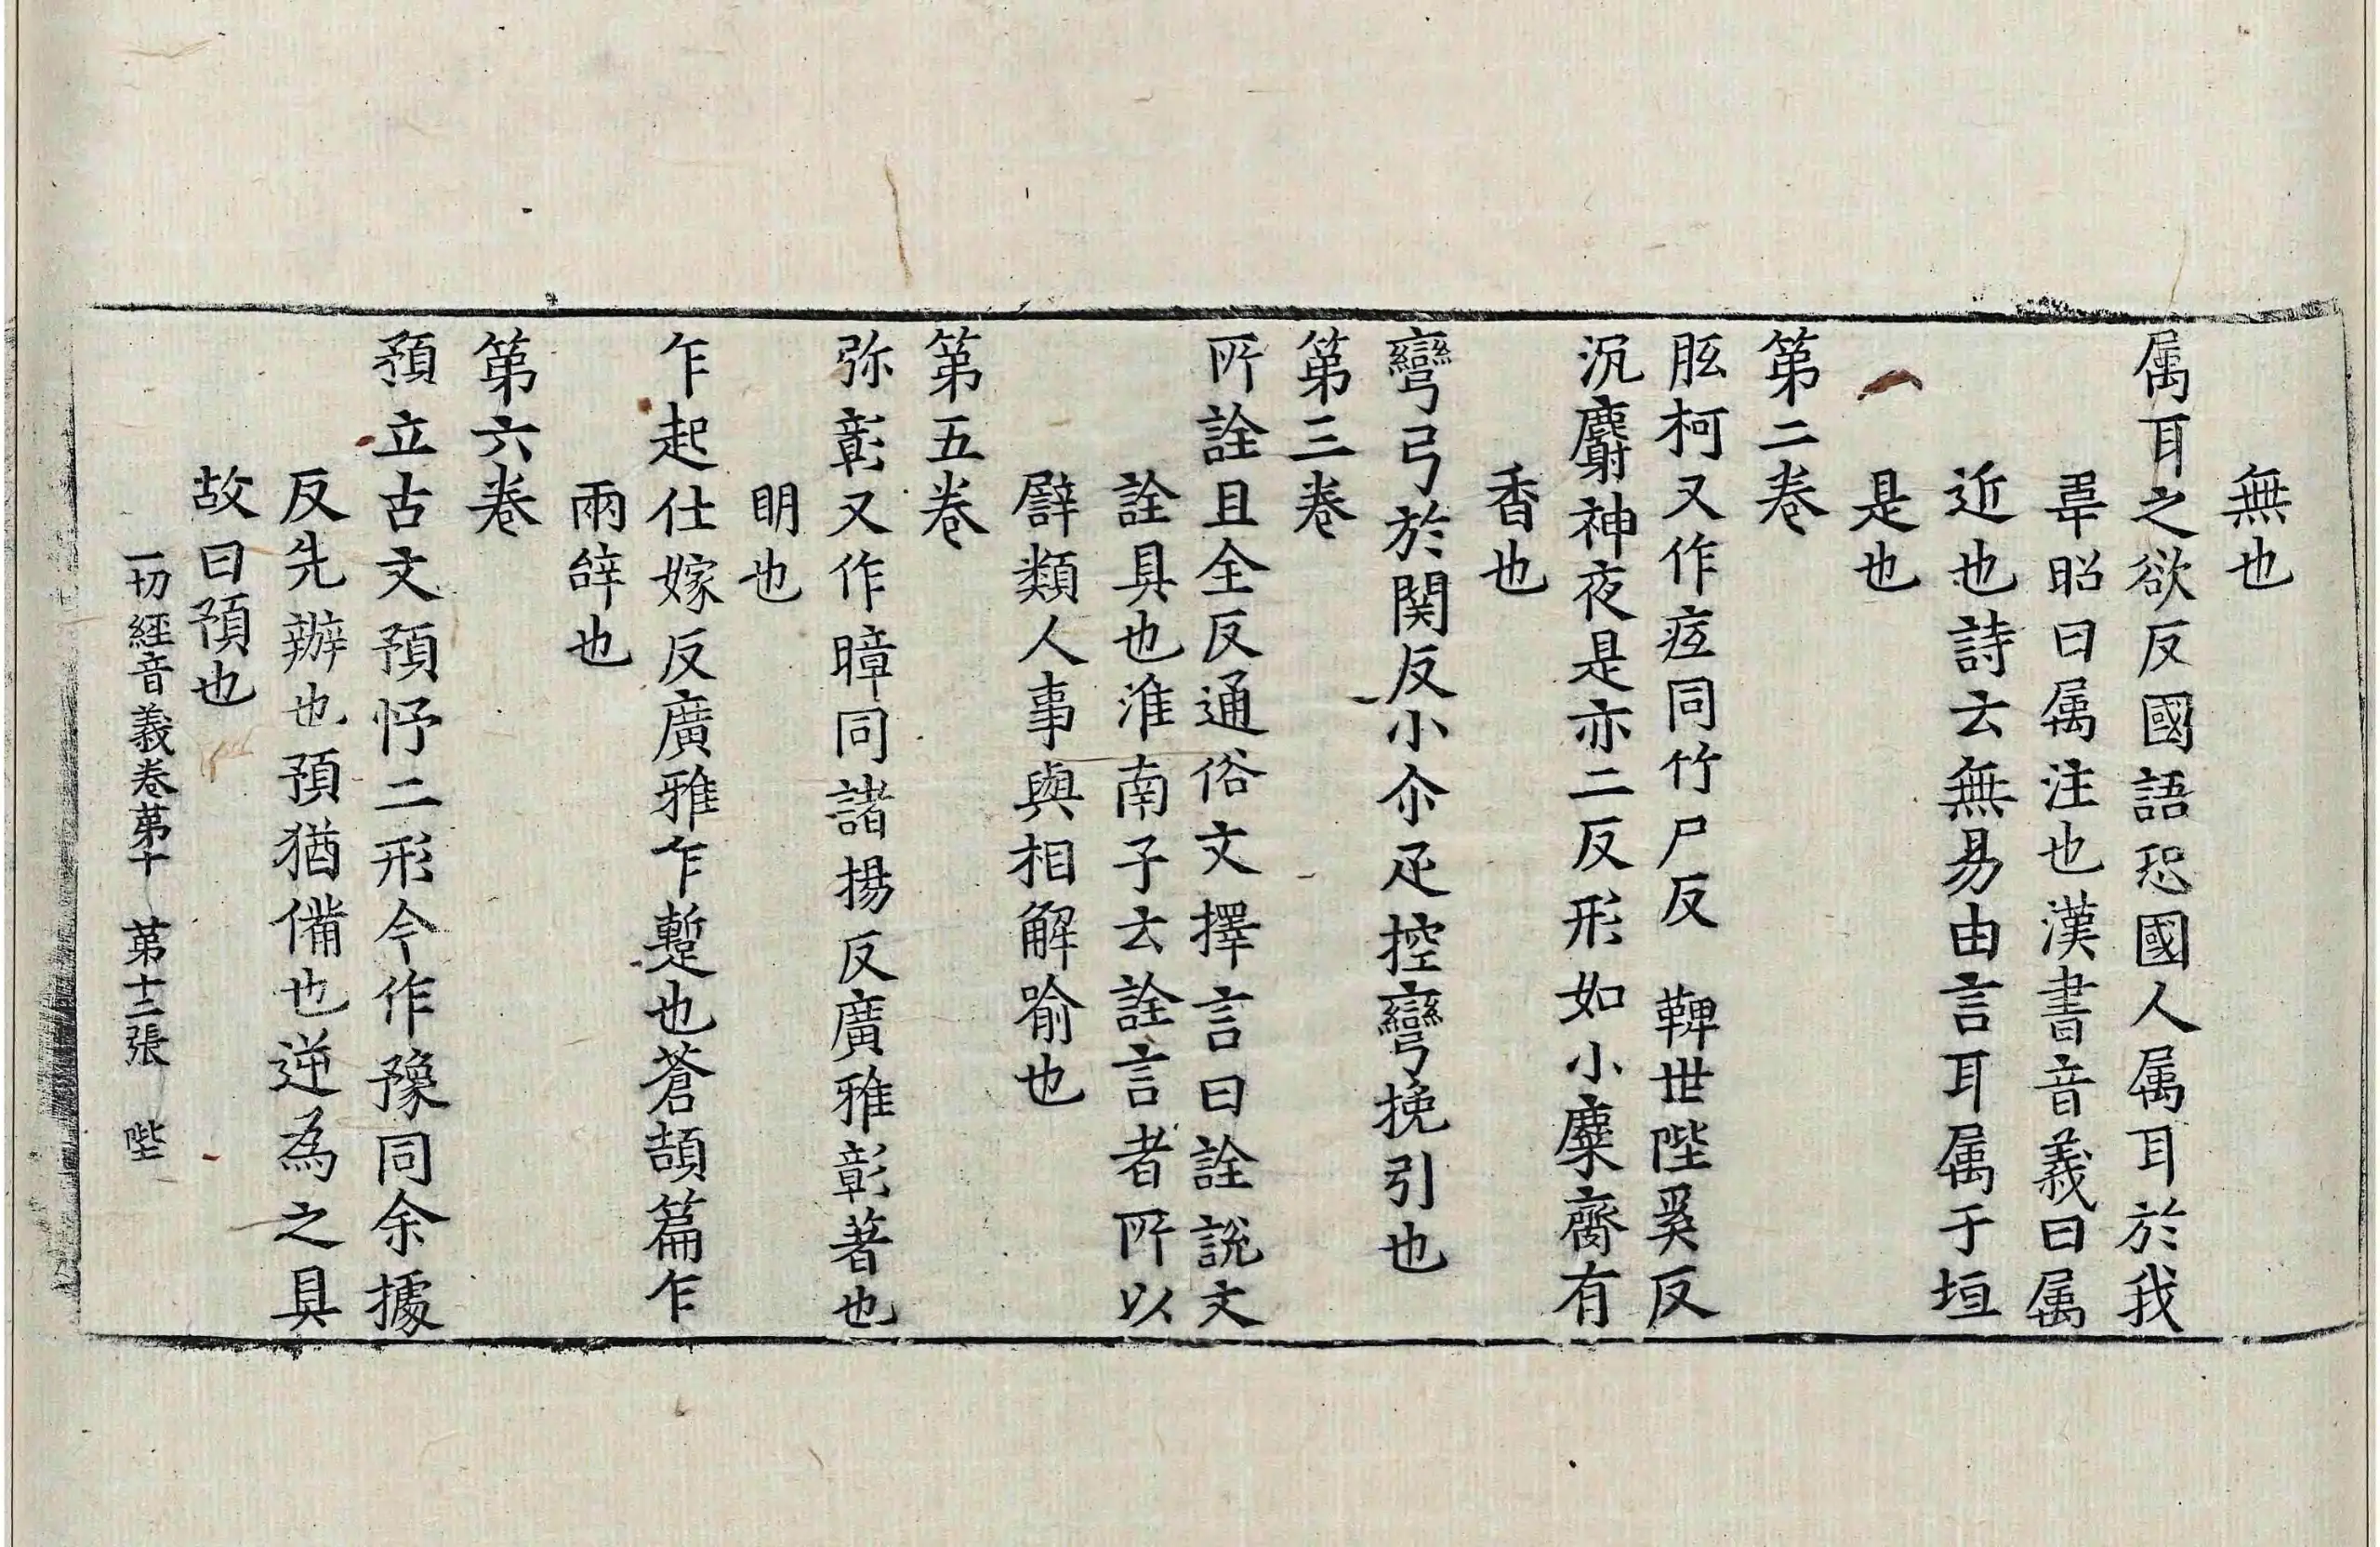 無也
属耳之欲反國語恐國人属耳於我
韋昭曰属注也漢書音義曰属
近也詩云無易由言耳属于垣
是也
第二卷
胵柯又作痓同竹尸反 鞞世陛奚反
沉麝神夜是亦二反形如小麋齎有
香也
彎弓於関反小尒疋控彎挽引也
第三卷
所詮且全反通俗文擇言曰詮說文
詮具也淮南子云詮言者所以
譬類人事與相解喻也
第五卷
弥彰又作暲同諸揚反廣雅彰著也
明也
乍起仕嫁反廣雅乍暫也蒼頡篇乍
兩辝也
第六卷
預立古文預忬二形今作豫同余據
反先辦也預猶備也逆為之具
故曰預也
一切經音義卷苐十 苐十二張 陛